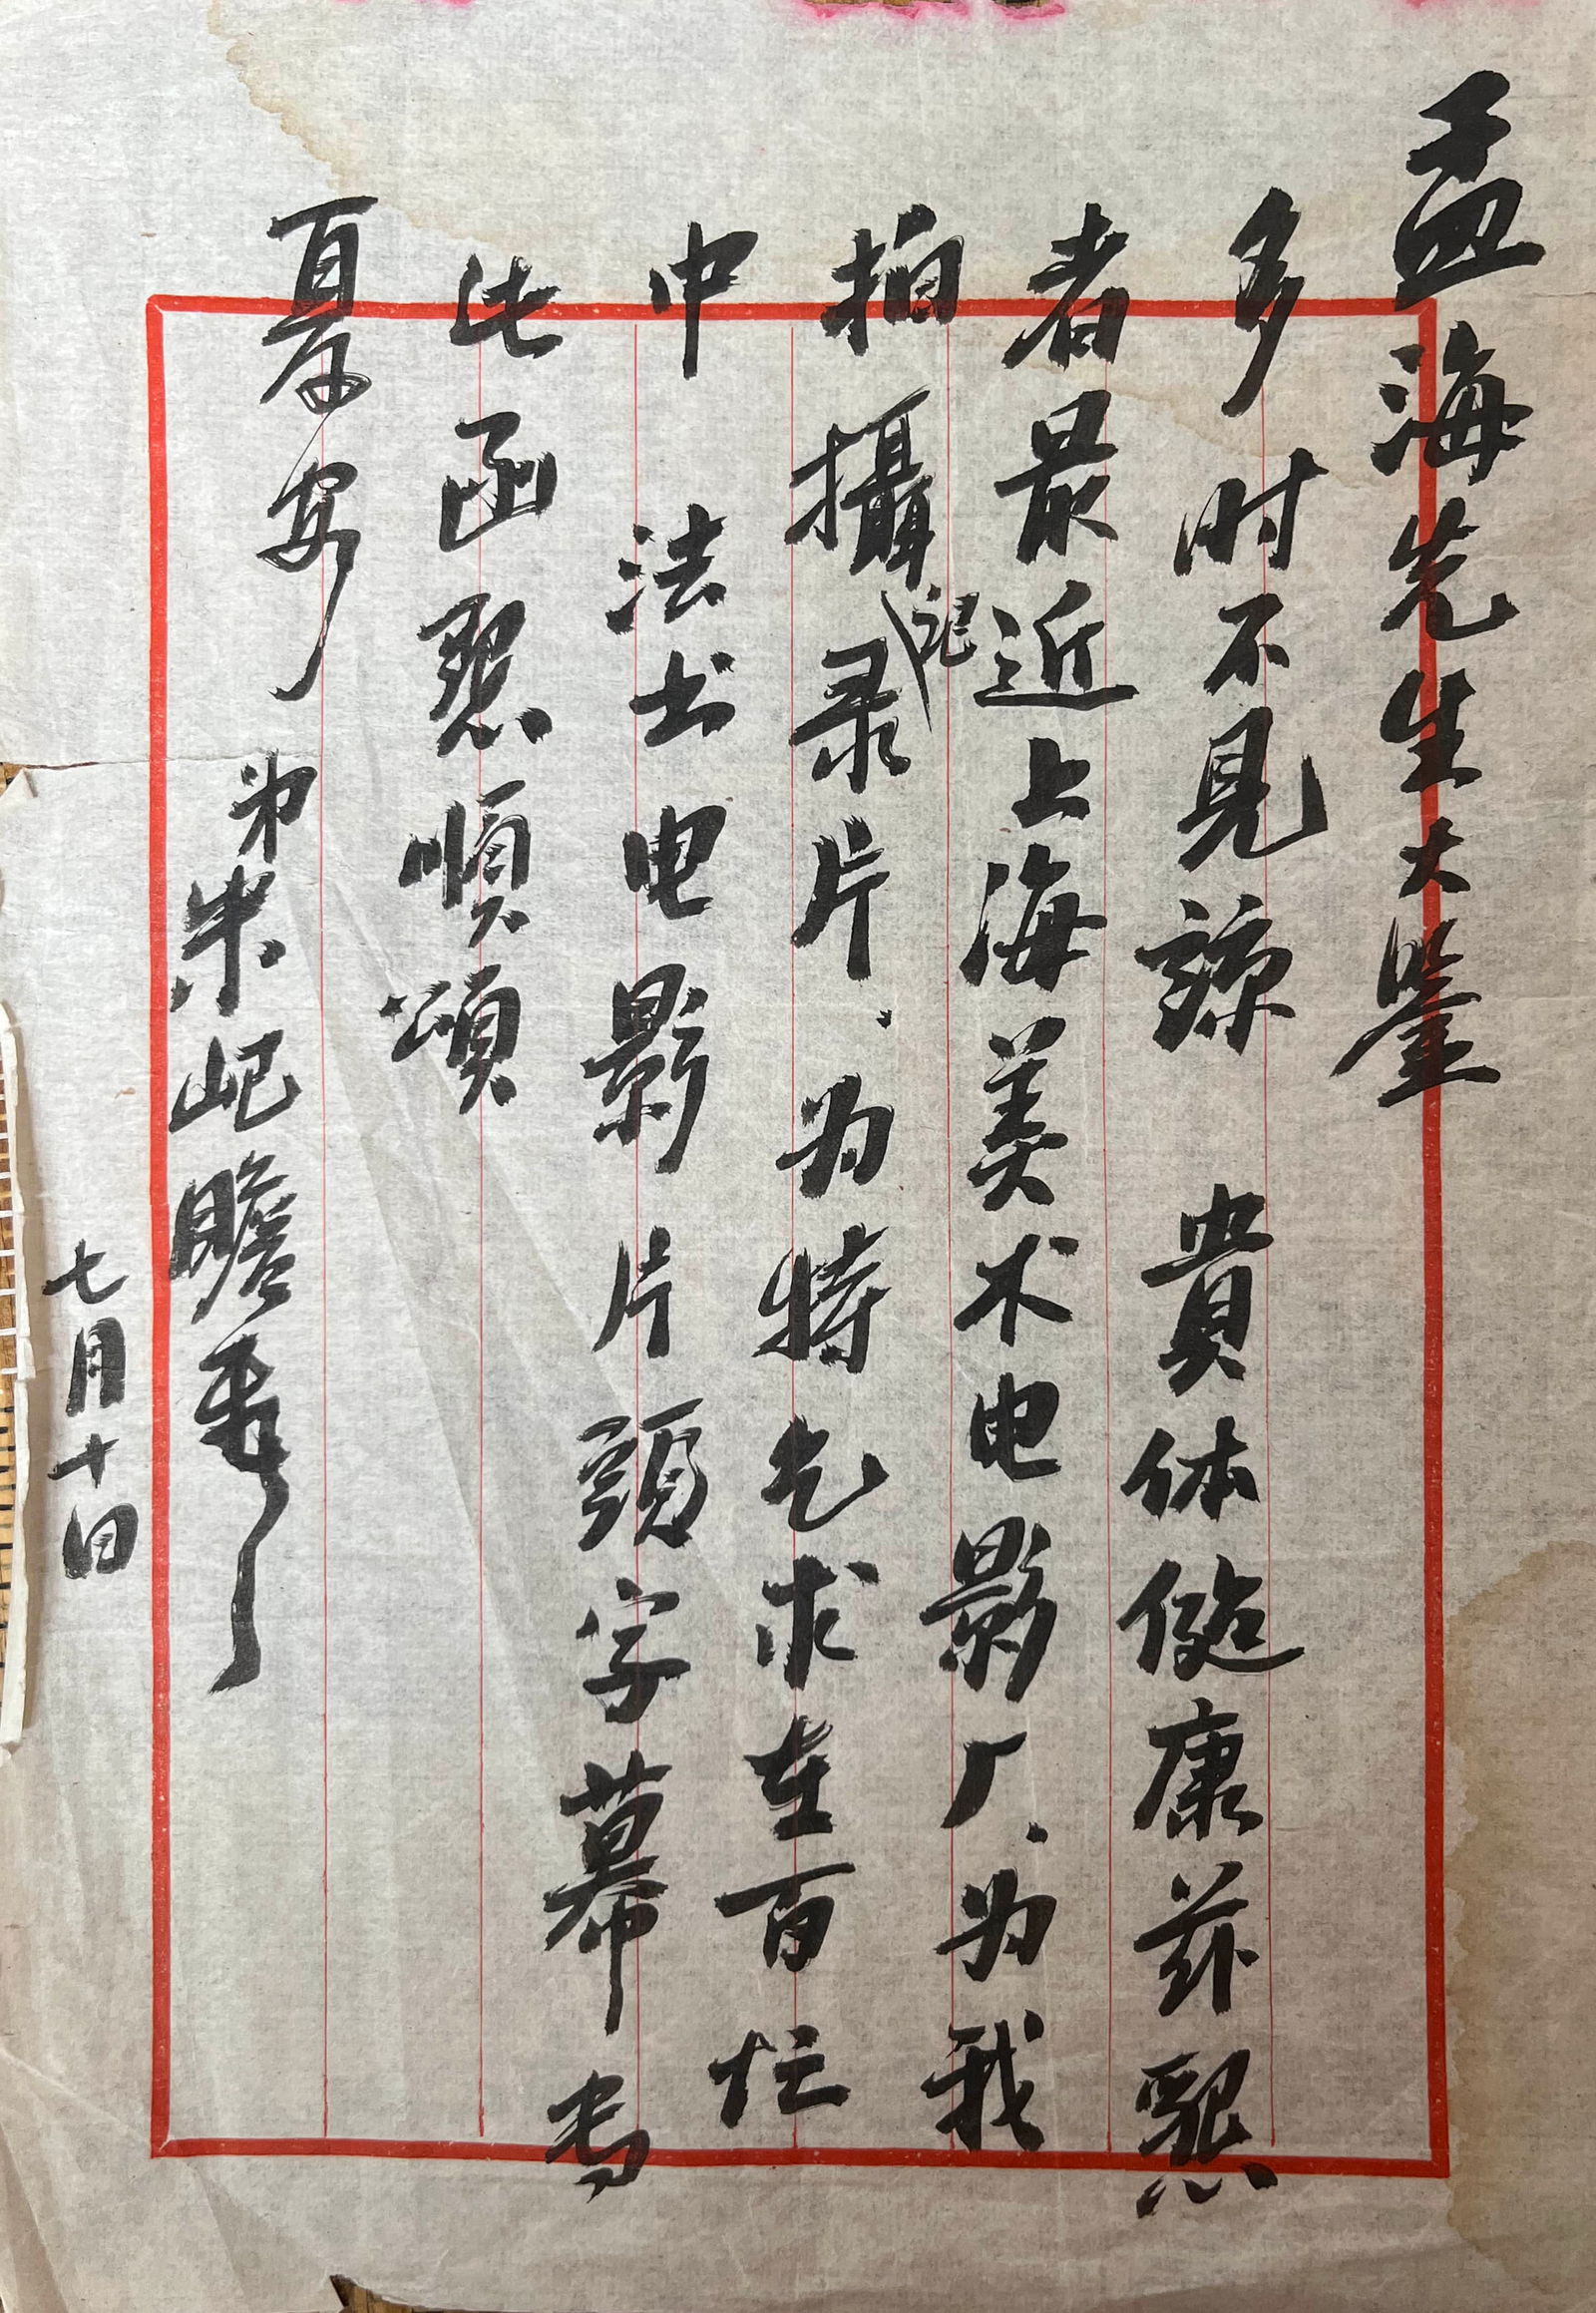 孟海先生大鑒
多时不見諒 貴体健康茲懇
者最近上海美术电影厂、为我
拍攝記录片、为特乞求在百忙
中 法书电影片頭字幕 专
此函懇順頌
夏安
弟朱屺瞻
七月十日